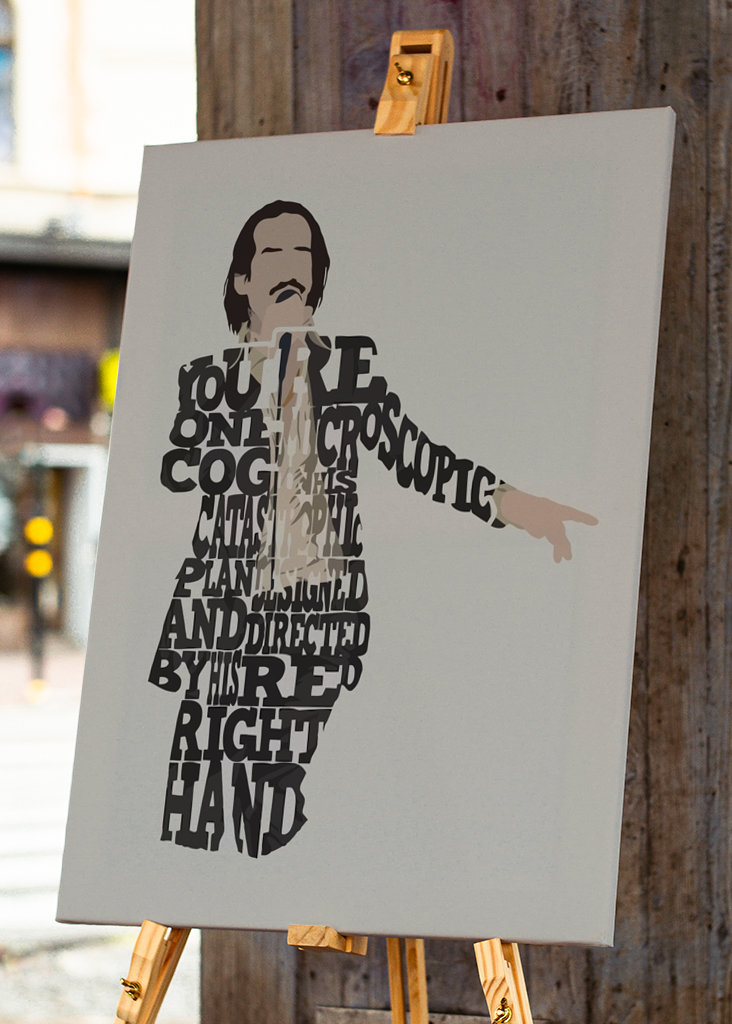 YOU'RE
ONE MICROSCOPIC
COG IN HIS
CATASTROPHIC
PLAN DESIGNED
AND DIRECTED
BY HIS RED
RIGHT
HAND